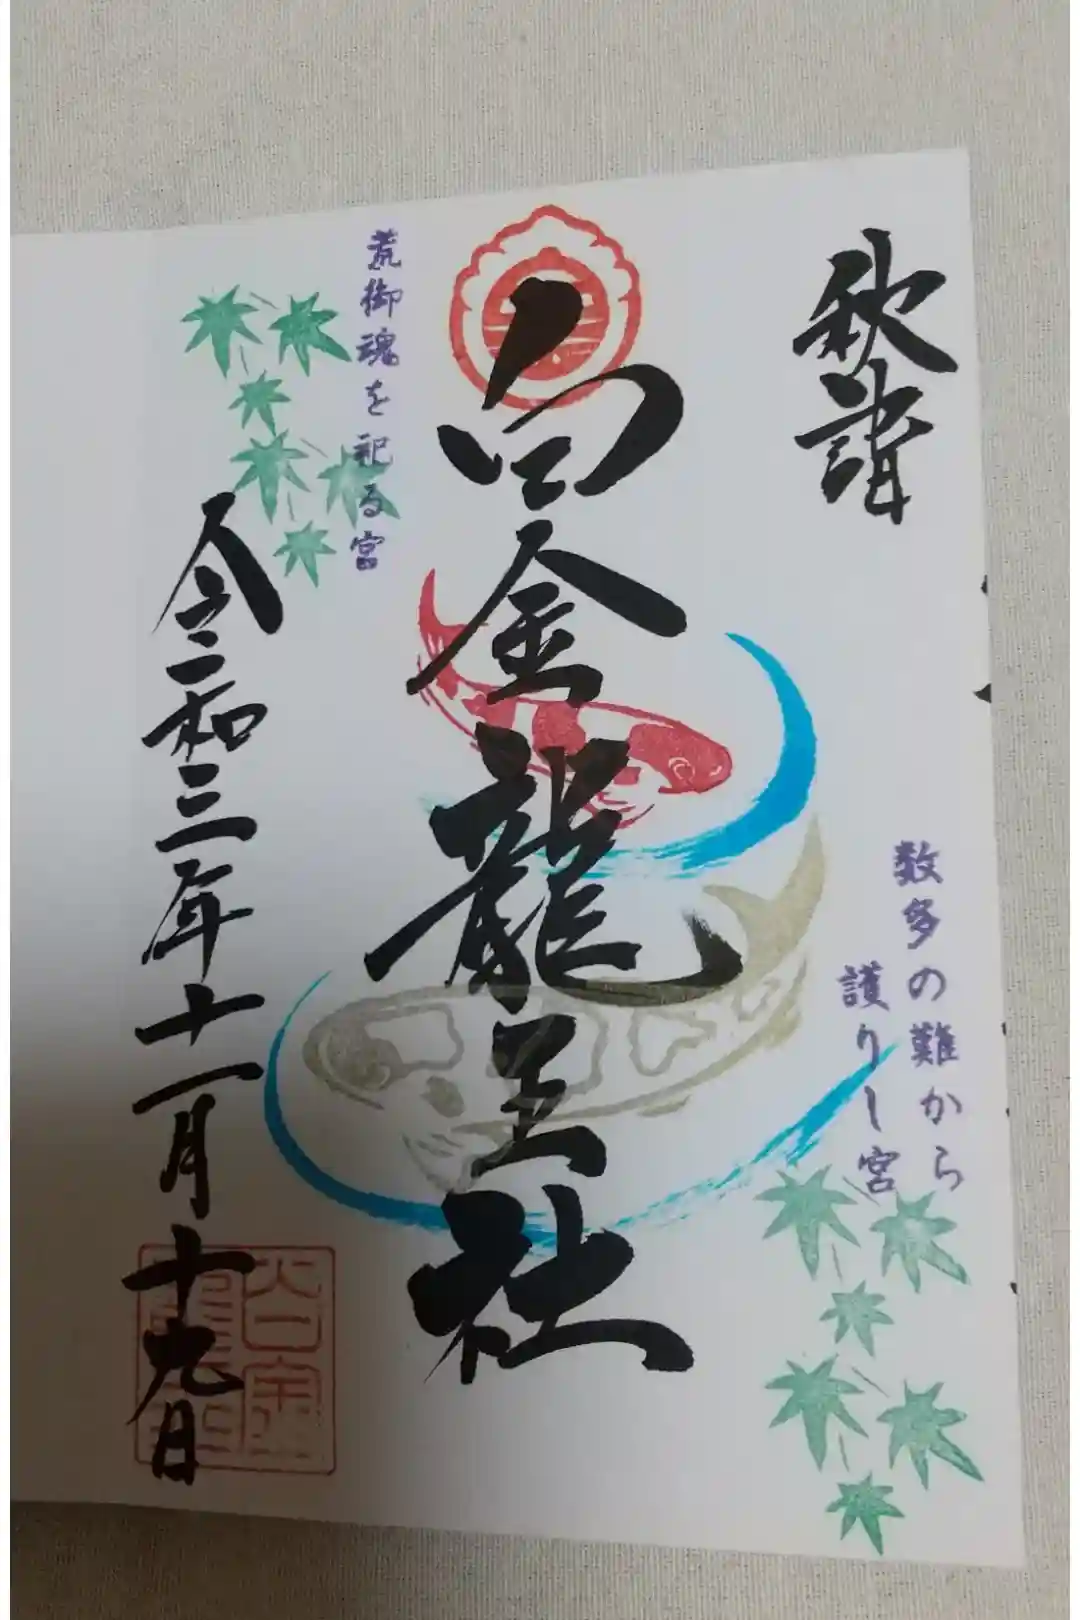 秋詣
数多の難から
護りし宮
白金龍王社
荒御魂を祀る宮
令和三年十一月十九日